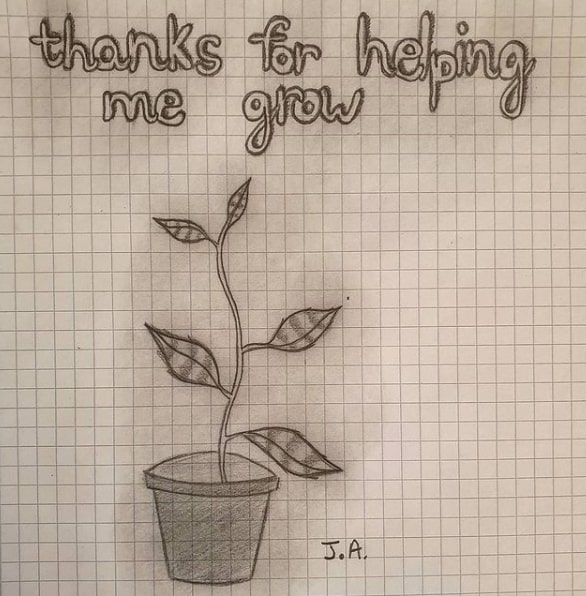 thanks for helping
me grow
J.A.